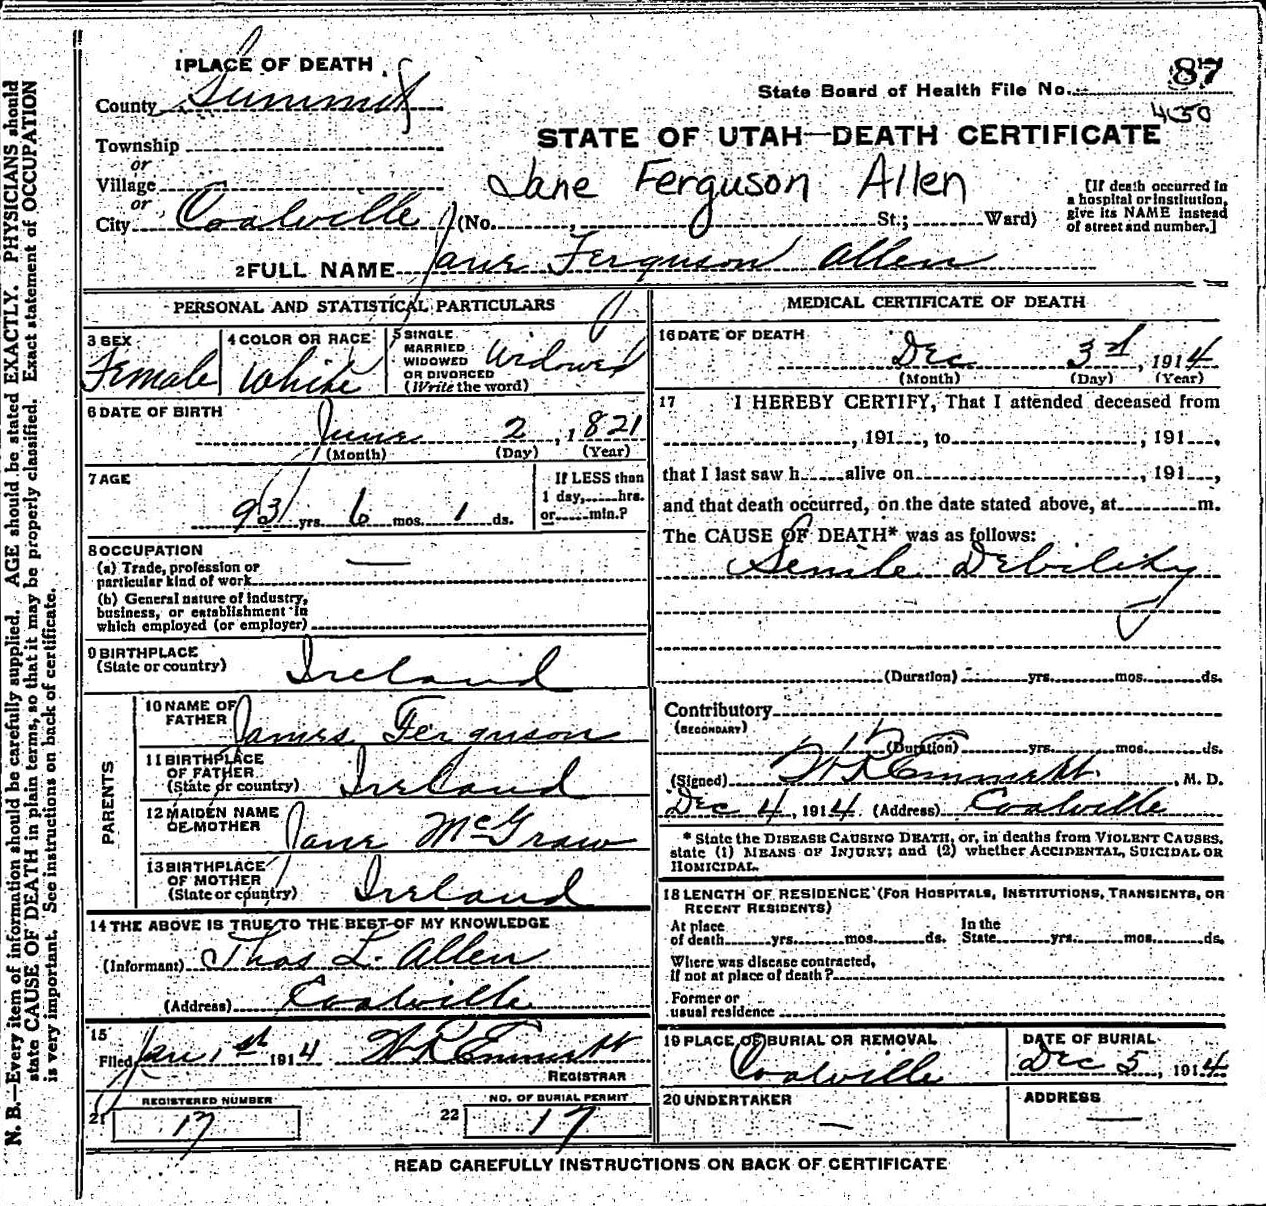 1 PLACE OF DEATH
County Summit
Township
or
Village
or
City Coalville (No. , St.; Ward)
State Board of Health File No. 87
450
STATE OF UTAH—DEATH CERTIFICATE
Jane Ferguson Allen
[If death occurred in
a hospital or institution,
give its NAME instead
of street and number.]
2 FULL NAME Jane Ferguson Allen
PERSONAL AND STATISTICAL PARTICULARS
3 SEX
Female
4 COLOR OR RACE
White
5 SINGLE
MARRIED
WIDOWED
OR DIVORCED
(Write the word)
Widowed
6 DATE OF BIRTH
June 2, 1821
(Month) (Day) (Year)
7 AGE
93 yrs. 6 mos. 1 ds.
If LESS than
1 day, hrs.
or min.?
8 OCCUPATION
(a) Trade, profession or
particular kind of work —
(b) General nature of industry,
business, or establishment in
which employed (or employer)
9 BIRTHPLACE
(State or country) Ireland
PARENTS
10 NAME OF
FATHER James Ferguson
11 BIRTHPLACE
OF FATHER
(State or country) Ireland
12 MAIDEN NAME
OF MOTHER Jane McGraw
13 BIRTHPLACE
OF MOTHER
(State or country) Ireland
14 THE ABOVE IS TRUE TO THE BEST OF MY KNOWLEDGE
(Informant) Thos L. Allen
(Address) Coalville
15
Filed Jan 1st 1914 W R Emmett
REGISTRAR
21 REGISTERED NUMBER
17
22 NO. OF BURIAL PERMIT
17
MEDICAL CERTIFICATE OF DEATH
16 DATE OF DEATH
Dec 3rd, 1914
(Month) (Day) (Year)
17 I HEREBY CERTIFY, That I attended deceased from
, 191 , to , 191 ,
that I last saw h alive on , 191 ,
and that death occurred, on the date stated above, at m.
The CAUSE OF DEATH* was as follows:
Senile Debility
(Duration) yrs. mos. ds.
Contributory
(SECONDARY)
(Duration) yrs. mos. ds.
(Signed) W R Emmett, M. D.
Dec 4, 1914. (Address) Coalville
* State the DISEASE CAUSING DEATH, or, in deaths from VIOLENT CAUSES,
state (1) MEANS OF INJURY; and (2) whether ACCIDENTAL, SUICIDAL OR
HOMICIDAL.
18 LENGTH OF RESIDENCE (FOR HOSPITALS, INSTITUTIONS, TRANSIENTS, OR
RECENT RESIDENTS)
At place
of death yrs. mos. ds.
In the
State yrs. mos. ds.
Where was disease contracted,
if not at place of death?
Former or
usual residence
19 PLACE OF BURIAL OR REMOVAL
Coalville
DATE OF BURIAL
Dec 5, 1914
20 UNDERTAKER
—
ADDRESS
—
READ CAREFULLY INSTRUCTIONS ON BACK OF CERTIFICATE
N. B.—Every item of information should be carefully supplied. AGE should be stated EXACTLY. PHYSICIANS should
state CAUSE OF DEATH in plain terms, so that it may be properly classified. Exact statement of OCCUPATION
is very important. See instructions on back of certificate.